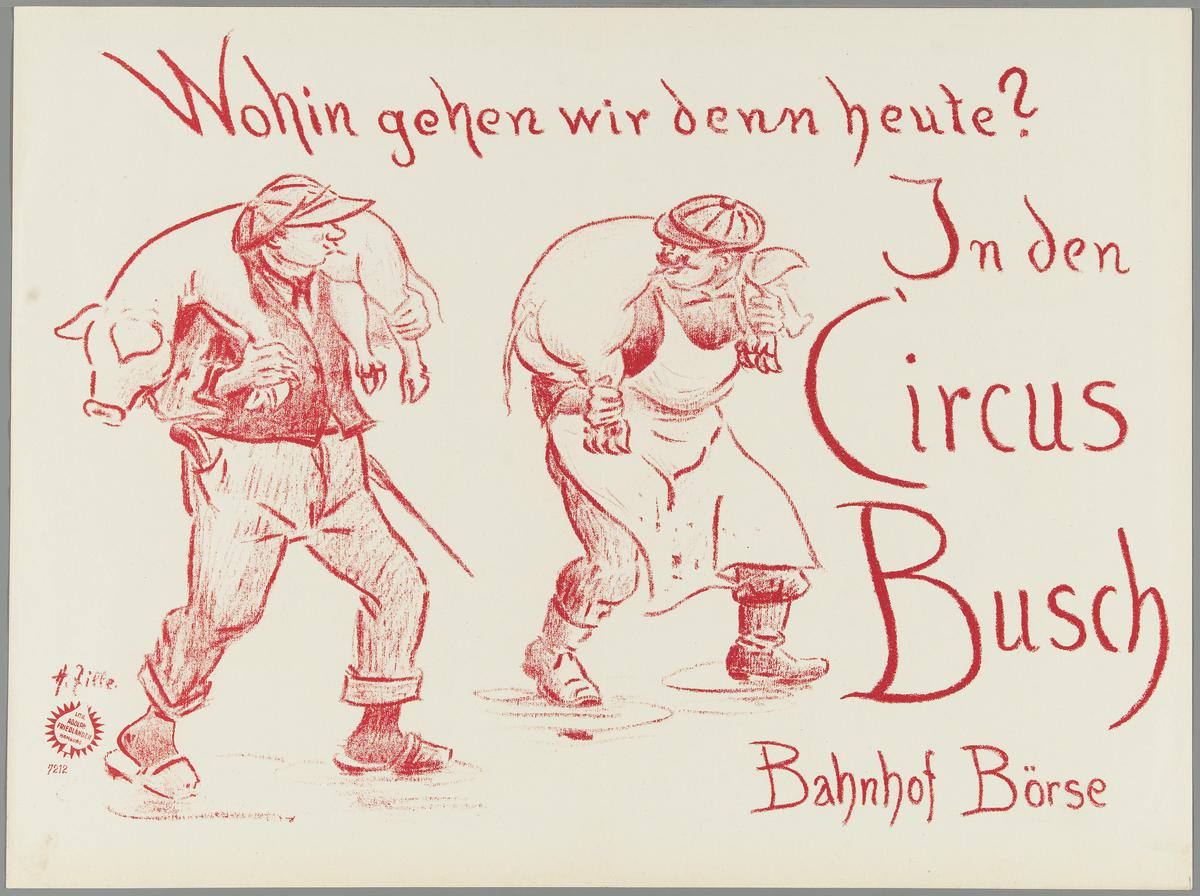 Wohin gehen wir denn heute?
In den
Circus
Busch
Bahnhof Börse
H. Zille.
LITH.
ADOLPH
FRIEDLÄNDER
HAMBURG
7212